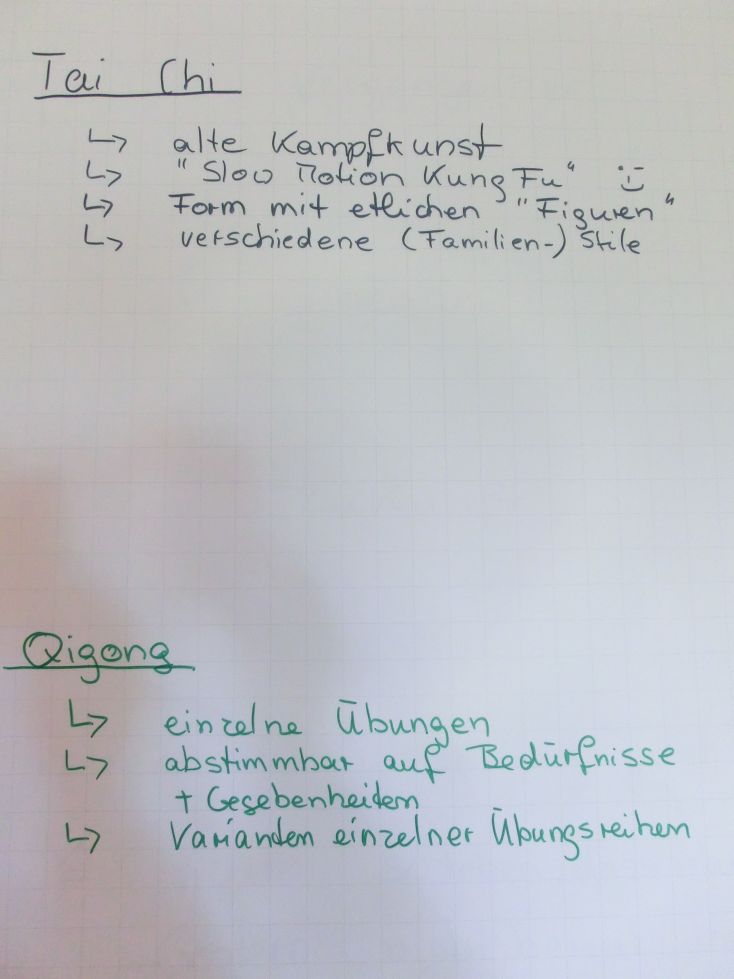 Tai Chi
↳ alte Kampfkunst
↳ "Slow Motion Kung Fu" :)
↳ Form mit etlichen "Figuren"
↳ verschiedene (Familien-) Stile
Qigong
↳ einzelne Übungen
↳ abstimmbar auf Bedürfnisse
+ Gegebenheiten
↳ Varianden einzelner Übungsreihen